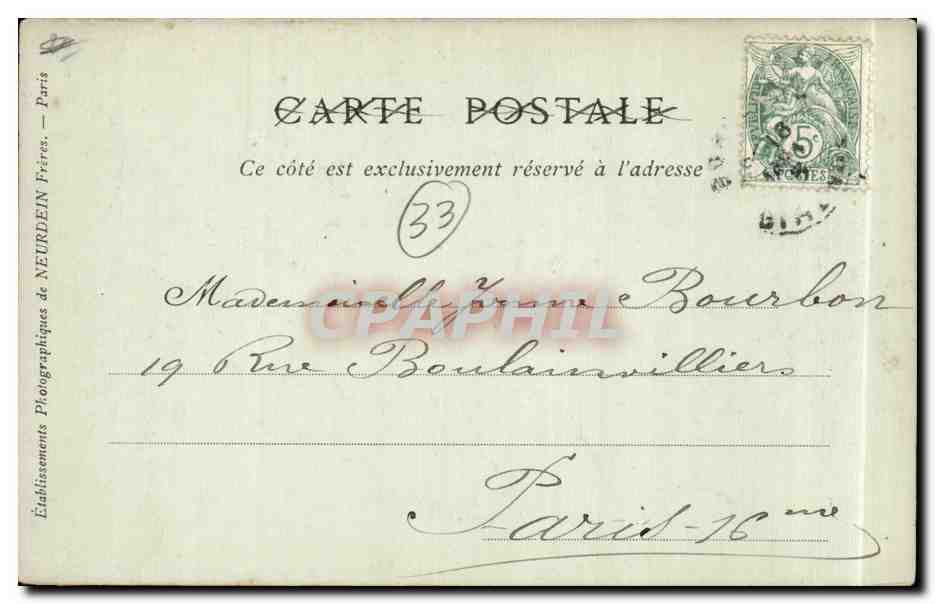 CARTE POSTALE
Ce côté est exclusivement réservé à l'adresse
RÉPUBLIQUE FRANÇAISE
5c
POSTES
33
Mademoiselle Yvonne Bourbon
19 Rue Boulainvilliers
Paris-16me
Établissements Photographiques de NEURDEIN Frères. — Paris
CPAPHIL